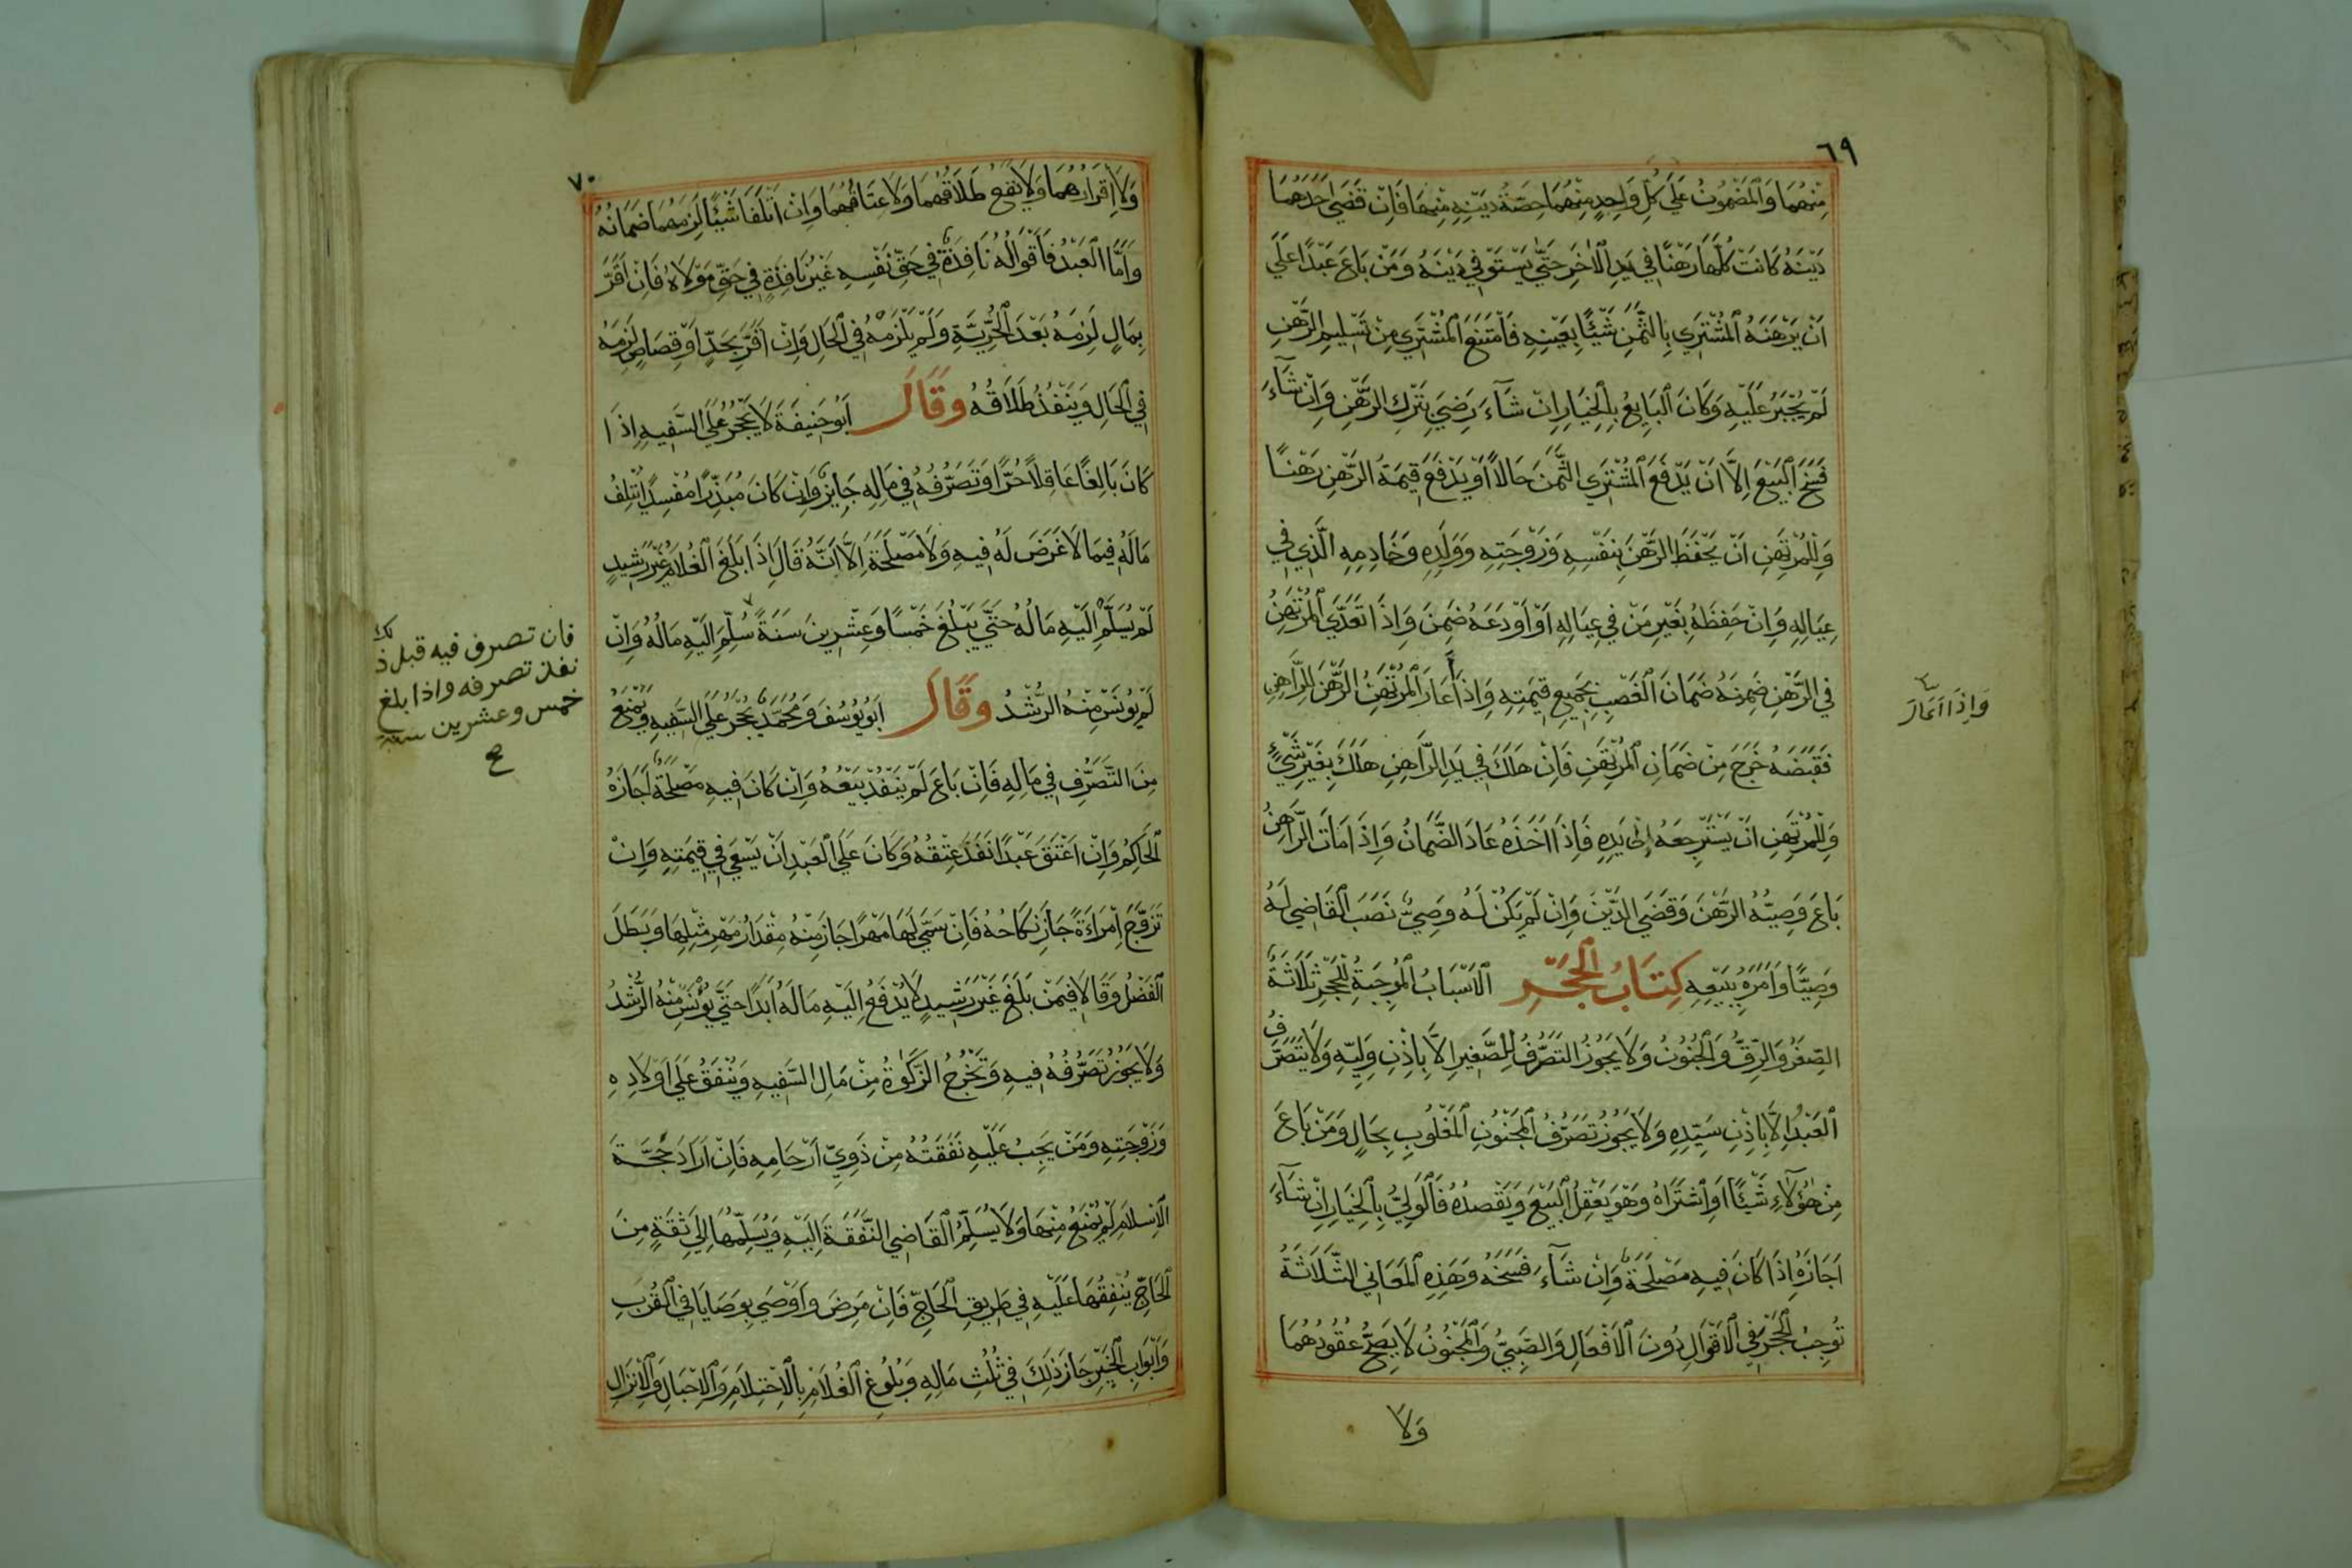 ٦٩
مِنْهُمَا وَالْمَضْمُونُ عَلَي كُلِّ وَاحِدٍ مِنْهُمَا حِصَّةُ دَيْنِهِ مِنْهَا فَاِنْ قَضَي اَحَدُهُمَا
دَيْنَهُ كَانَتْ كُلُّهَا رَهْنًا فِي يَدِ الْاٰخَرِ حَتّٰي يَسْتَوْفِي دَيْنَهُ وَمَنْ بَاعَ عَبْدًا عَلَي
اَنْ يَرْهَنَهُ الْمُشْتَرِي بِالثَّمَنِ شَيْئًا بِعَيْنِهِ فَامْتَنَعَ الْمُشْتَرِي مِنْ تَسْلِيمِ الرَّهْنِ
لَمْ يُجْبَرْ عَلَيْهِ وَكَانَ الْبَايِعُ بِالْخِيَارِ اِنْ شَآءَ رَضِيَ بِتَرْكِ الرَّهْنِ وَاِنْ شَآءَ
فَسَخَ الْبَيْعَ اِلَّا اَنْ يَدْفَعَ الْمُشْتَرِي الثَّمَنَ حَالًا اَوْ يَدْفَعَ قِيمَةَ الرَّهْنِ رَهْنًا
وَلِلْمُرْتَهِنِ اَنْ يَحْفَظَ الرَّهْنَ بِنَفْسِهِ وَزَوْجَتِهِ وَوَلَدِهِ وَخَادِمِهِ الَّذِي فِي
عِيَالِهِ وَاِنْ حَفِظَهُ بِغَيْرِ مَنْ فِي عِيَالِهِ اَوْ اَوْدَعَهُ ضَمِنَ وَاِذَا تَعَدَّي الْمُرْتَهِنُ
فِي الرَّهْنِ ضَمِنَهُ ضَمَانَ الْغَصْبِ بِجَمِيعِ قِيمَتِهِ وَاِذَا اَعَارَ الْمُرْتَهِنُ الرَّهْنَ لِلرَّاهِنِ
فَقَبَضَهُ خَرَجَ مِنْ ضَمَانِ الْمُرْتَهِنِ فَاِنْ هَلَكَ فِي يَدِ الرَّاهِنِ هَلَكَ بِغَيْرِ شَيْءٍ
وَلِلْمُرْتَهِنِ اَنْ يَسْتَرْجِعَهُ اِلٰي يَدِهِ فَاِذَا اَخَذَهُ عَادَ الضَّمَانُ وَاِذَا مَاتَ الرَّاهِنُ
بَاعَ وَصِيُّهُ الرَّهْنَ وَقَضَي الدَّيْنَ وَاِنْ لَمْ يَكُنْ لَهُ وَصِيٌّ نَصَبَ الْقَاضِي لَهُ
وَصِيًّا وَاَمَرَهُ بِبَيْعِهِ كِتَابُ الْحَجْرِ الْاَسْبَابُ الْمُوجِبَةُ لِلْحَجْرِ ثَلَاثَةٌ
الصِّغَرُ وَالرِّقُّ وَالْجُنُونُ وَلَا يَجُوزُ التَصَرُّفُ لِلصَّغِيرِ اِلَّا بِاِذْنِ وَلِيِّهِ وَلَا يَتَصَرَّفُ
الْعَبْدُ اِلَّا بِاِذْنِ سَيِّدِهِ وَلَا يَجُوزُ تَصَرُّفُ الْمَجْنُونِ الْمَغْلُوبِ بِحَالٍ وَمَنْ بَاعَ
مِنْ هٰؤُلَاءِ شَيْئًا اَوِ اشْتَرَاهُ وَهُوَ يَعْقِلُ الْبَيْعَ وَيَقْصِدُهُ فَالْوَلِيُّ بِالْخِيَارِ اِنْ شَآءَ
اَجَازَهُ اِذَا كَانَ فِيهِ مَصْلَحَةٌ وَاِنْ شَآءَ فَسَخَهُ وَهَذِهِ الْمَعَانِي الثَّلَاثَةُ
تُوجِبُ الْحَجْرَ فِي الْاَقْوَالِ دُونَ الْاَفْعَالِ وَالصَّبِيُّ وَالْمَجْنُونُ لَا يَصِحُّ عُقُودُهُمَا
وَلَا
وَاِذَا
٧٠
وَلَا اِقْرَارُهُمَا وَلَا يَقَعُ طَلَاقُهُمَا وَلَا عِتَاقُهُمَا وَاِنْ اَتْلَفَا شَيْئًا لَزِمَهُمَا ضَمَانُهُ
وَاَمَّا الْعَبْدُ فَاَقْوَالُهُ نَافِذَةٌ فِي حَقِّ نَفْسِهِ غَيْرُ نَافِذَةٍ فِي حَقِّ مَوْلَاهُ فَاِنْ اَقَرَّ
بِمَالٍ لَزِمَهُ بَعْدَ الْحُرِّيَّةِ وَلَمْ يَلْزَمْهُ فِي الْحَالِ وَاِنْ اَقَرَّ بِحَدٍّ اَوْ قِصَاصٍ لَزِمَهُ
فِي الْحَالِ وَيَنْفُذُ طَلَاقُهُ وَقَالَ اَبُو حَنِيفَةَ لَا يُحْجَرُ عَلَي السَّفِيهِ اِذَا
كَانَ بَالِغًا عَاقِلًا حُرًّا وَتَصَرُّفُهُ فِي مَالِهِ جَايِزٌ وَاِنْ كَانَ مُبَذِّرًا مُفْسِدًا يُتْلِفُ
مَالَهُ فِيمَا لَا غَرَضَ لَهُ فِيهِ وَلَا مَصْلَحَةَ اِلَّا اَنَّهُ قَالَ اِذَا بَلَغَ الْغُلَامُ غَيْرَ رَشِيدٍ
لَمْ يُسَلَّمْ اِلَيْهِ مَالُهُ حَتَّي يَبْلُغَ خَمْسًا وَعِشْرِينَ سَنَةً سُلِّمَ اِلَيْهِ مَالُهُ وَاِنْ
لَمْ يُونَسْ مِنْهُ الرُّشْدُ وَقَالَ اَبُو يُوسُفَ وَمُحَمَّدٌ يُحْجَرُ عَلَي السَّفِيهِ وَيُمْنَعُ
مِنَ التَّصَرُّفِ فِي مَالِهِ فَاِنْ بَاعَ لَمْ يَنْفُذْ بَيْعُهُ وَاِنْ كَانَ فِيهِ مَصْلَحَةٌ اَجَازَهُ
الْحَاكِمُ وَاِنْ اَعْتَقَ عَبْدًا نَفَذَ عِتْقُهُ وَكَانَ عَلَي الْعَبْدِ اَنْ يَسْعَي فِي قِيمَتِهِ وَاِنْ
تَزَوَّجَ اِمْرَاَةً جَازَ نِكَاحُهُ فَاِنْ سَمَّي لَهَا مَهْرًا جَازَ مِنْهُ مِقْدَارُ مَهْرِ مِثْلِهَا وَبَطَلَ
الْفَضْلُ وَقَالَا فِيمَنْ بَلَغَ غَيْرَ رَشِيدٍ لَا يُدْفَعُ اِلَيْهِ مَالَهُ اَبَدًا حَتَّي يُؤْنَسَ مِنْهُ الرُّشْدُ
وَلَا يَجُوزُ تَصَرُّفُهُ فِيهِ وَتُخْرَجُ الزَّكٰوةُ مِنْ مَالِ السَّفِيهِ وَيُنْفَقُ عَلَي اَوْلَادِهِ
وَزَوْجَتِهِ وَمَنْ يَجِبُ عَلَيْهِ نَفَقَتُهُ مِنْ ذَوِي اَرْحَامِهِ فَاِنْ اَرَادَ حَجَّةَ
الْاِسْلَامِ لَمْ يُمْنَعْ مِنْهَا وَلَا يُسَلِّمُ الْقَاضِي النَّفَقَةَ اِلَيْهِ وَيُسَلِّمُهَا اِلَي ثِقَةٍ مِنَ
الْحَاجِّ يُنْفِقُهَا عَلَيْهِ فِي طَرِيقِ الْحَاجِّ فَاِنْ مَرِضَ وَاَوْصَي بِوَصَايَا فِي الْقُرَبِ
وَاَبْوَابِ الْخَيْرِ جَازَ ذَلِكَ فِي ثُلُثِ مَالِهِ وَبُلُوغِ الْغُلَامِ بِالْاِحْتِلَامِ وَالْاِحْبَالِ وَالْاِنْزَالِ
فان تصرف فيه قبل ذلك
نفذ تصرفه واذا بلغ
خمس وعشرين سنة